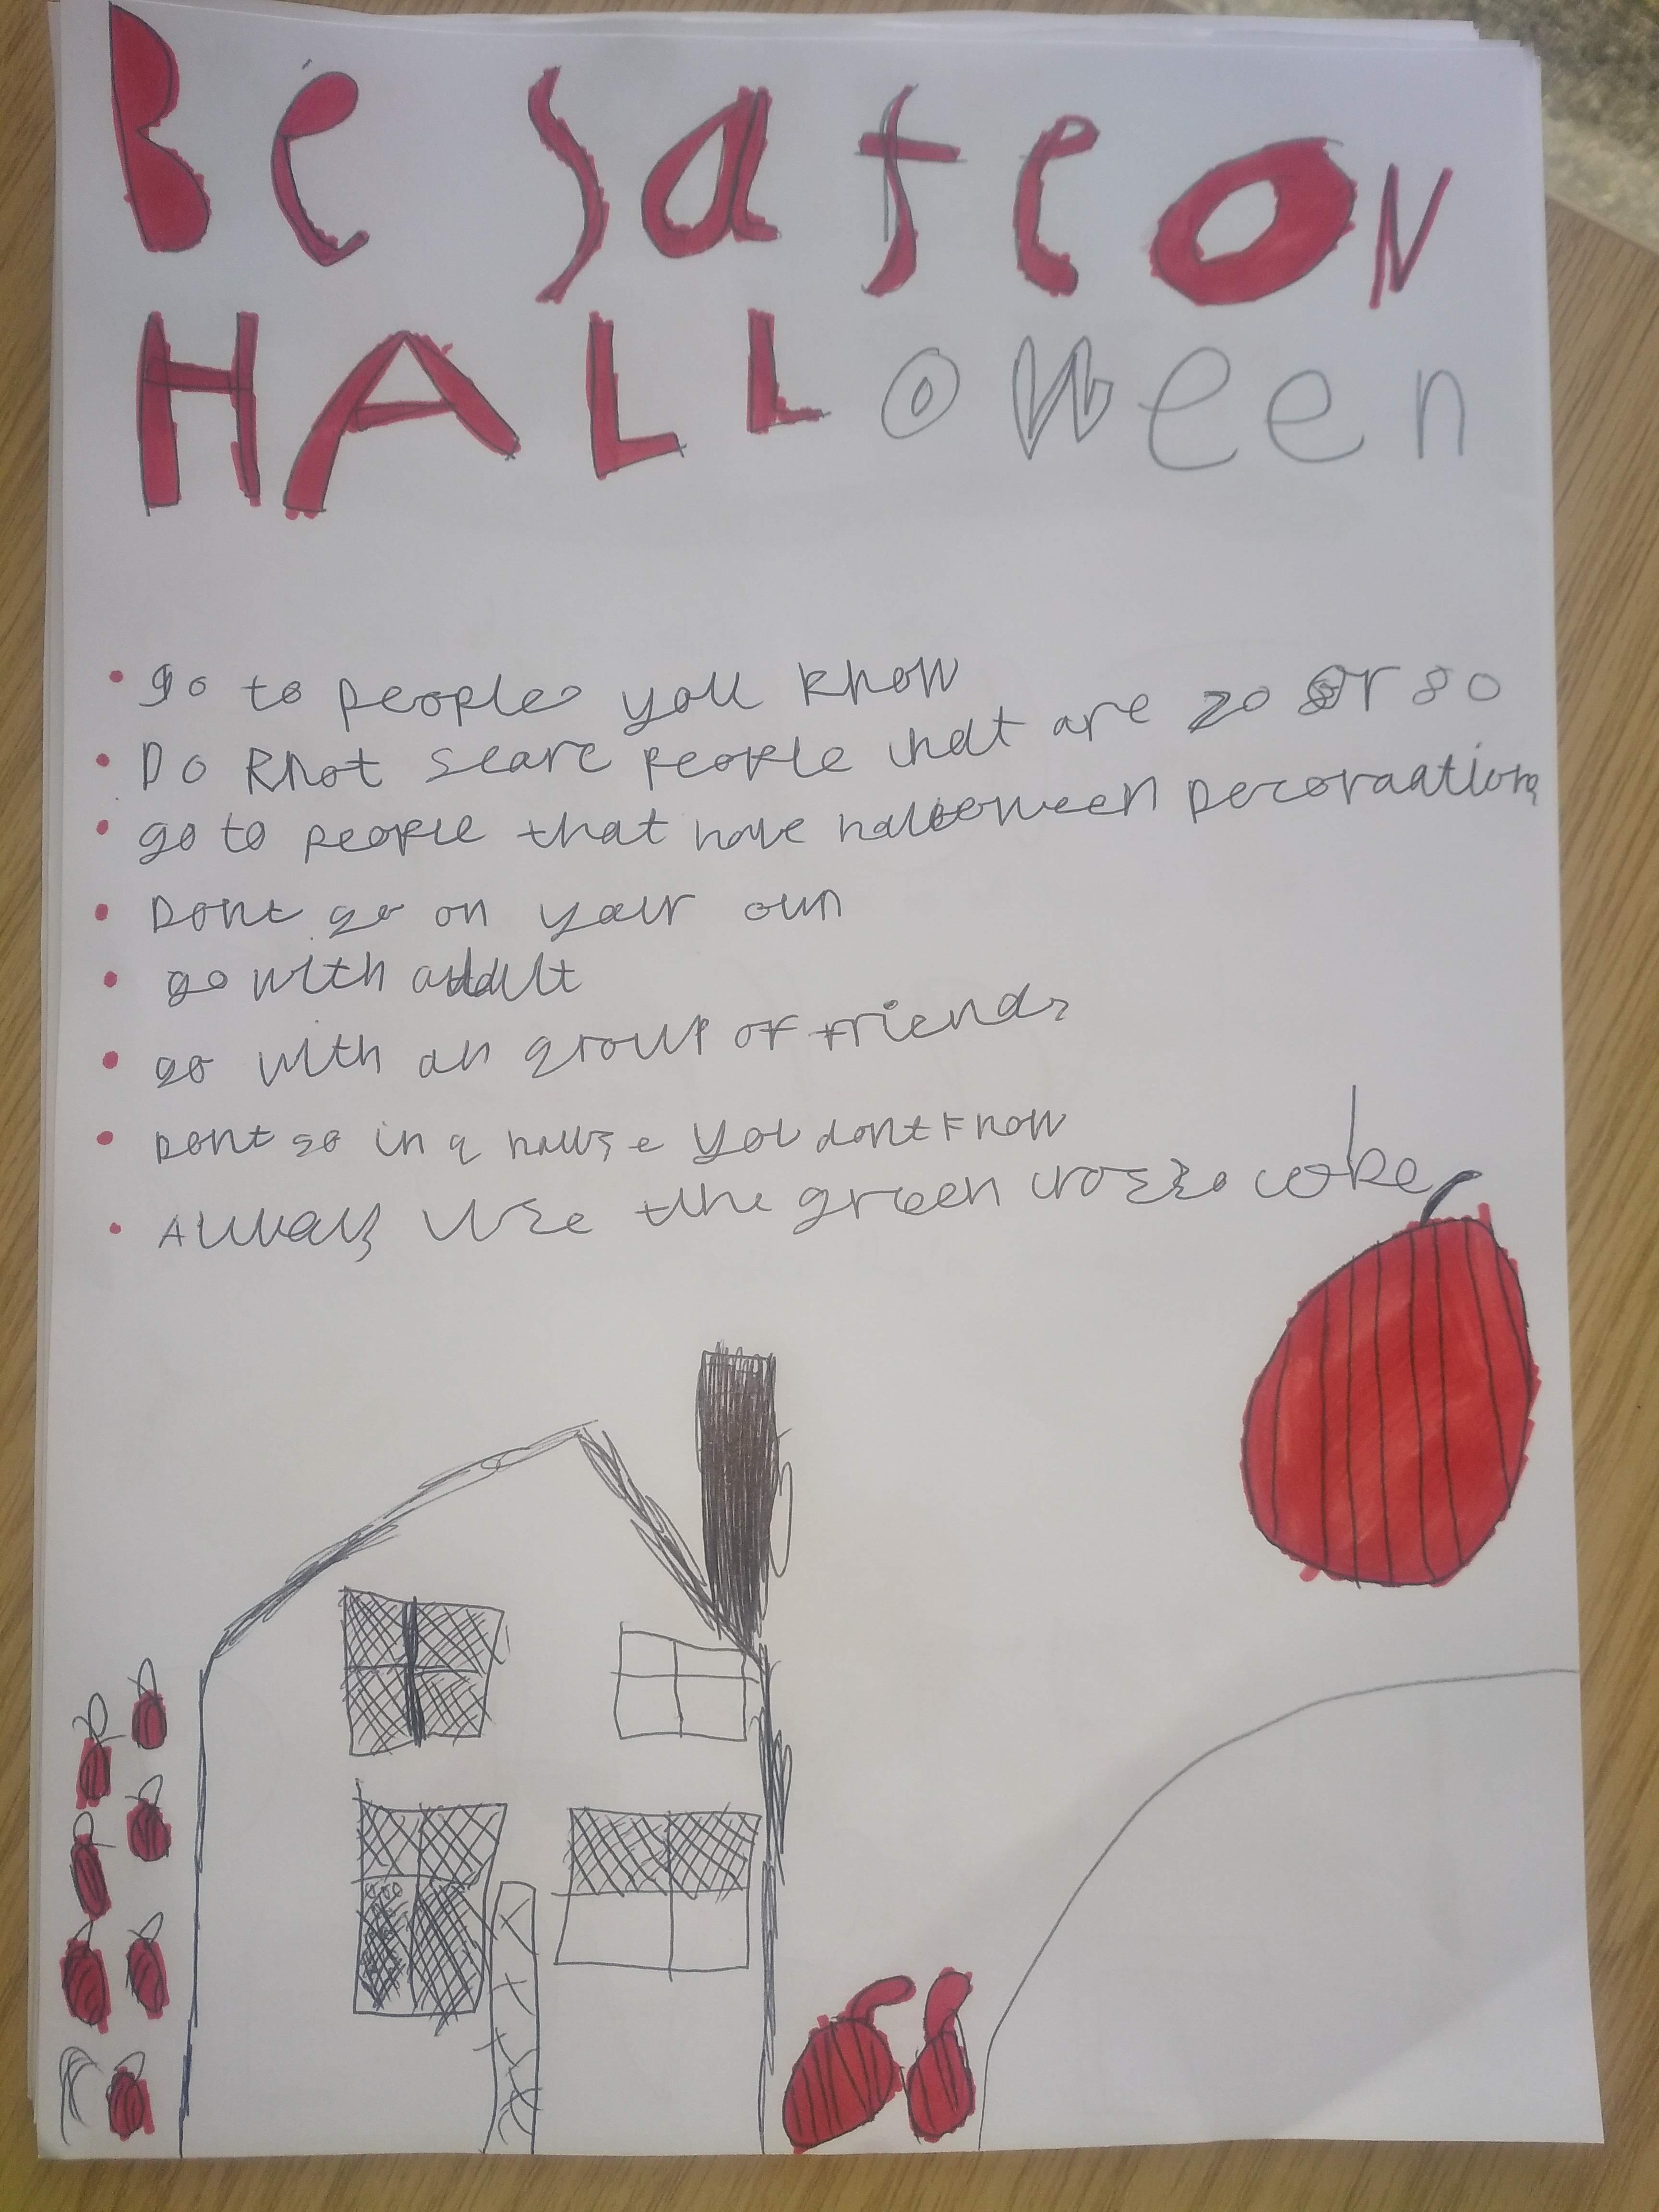 Be safe ON
HALLoween
• go to people you know
• Do knot scare people that are 70 or 80
• go to people that have halloween Decoraations
• Dont go on your own
• go with adult
• go with an group of friends
• Dont go in a house you dont know
• Always use the green cross code